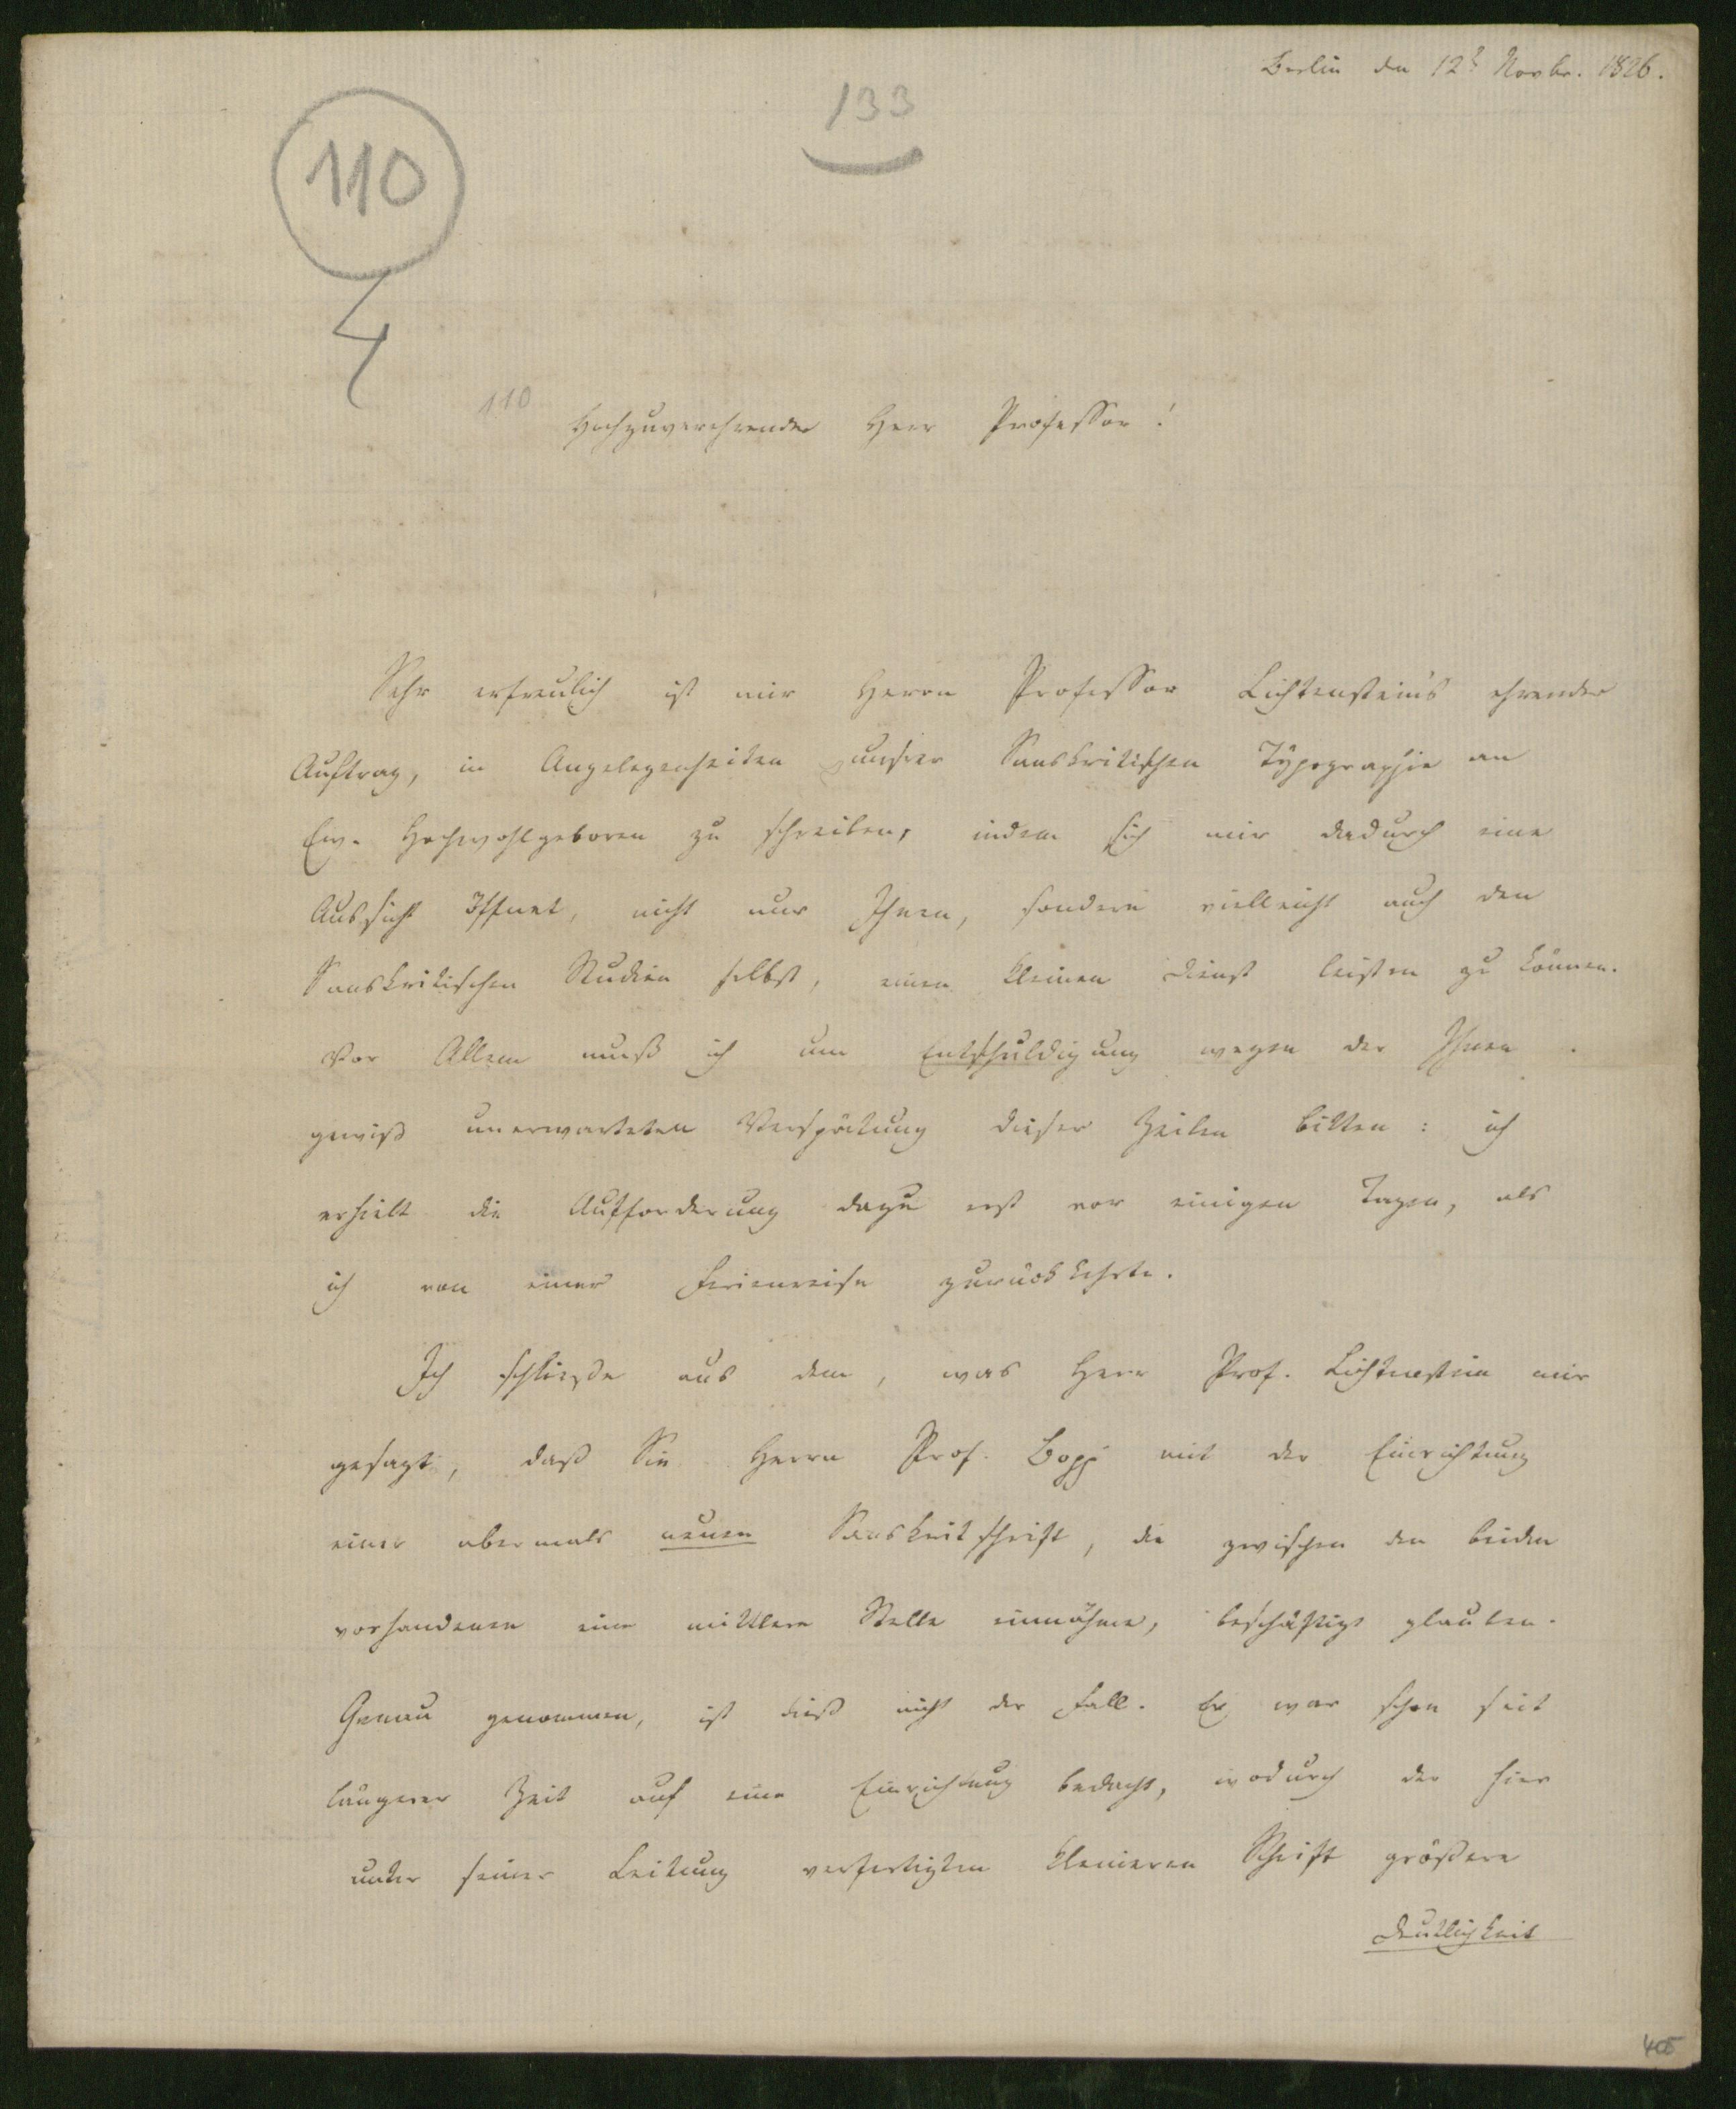 Berlin den 12t Novbr. 1826.
133
110
4
110
Hochzuverehrender Herr Professor!
Sehr erfreulich ist mir Herrn Professor Lichtenstein's ehrender
Auftrag, in Angelegenheiten unsrer Sanskritischen Typographie an
Ew. Hochwohlgeboren zu schreiben, indem sich mir dadurch eine
Aussicht öffnet, nicht nur Ihnen, sondern vielleicht auch den
Sanskritischen Studien selbst, einen kleinen Dienst leisten zu können.
Vor Allem muß ich um Entschuldigung wegen der Ihnen
gewiß unerwarteten Verspätung dieser Zeilen bitten: ich
erhielt die Aufforderung dazu erst vor einigen Tagen, als
ich von einer Ferienreise zurückkehrte.
Ich schließe aus dem, was Herr Prof. Lichtenstein mir
gesagt, daß Sie Herrn Prof. Bopp mit der Einrichtung
einer abermals neuen Sanskritschrift, die zwischen den beiden
vorhandenen eine mittlere Stelle einnähme, beschäftigt glauben.
Genau genommen, ist dieß nicht der Fall. Er war schon seit
längerer Zeit auf eine Einrichtung bedacht, wodurch der hier
unter seiner Leitung verfertigten kleineren Schrift größere
Deutlichkeit
405